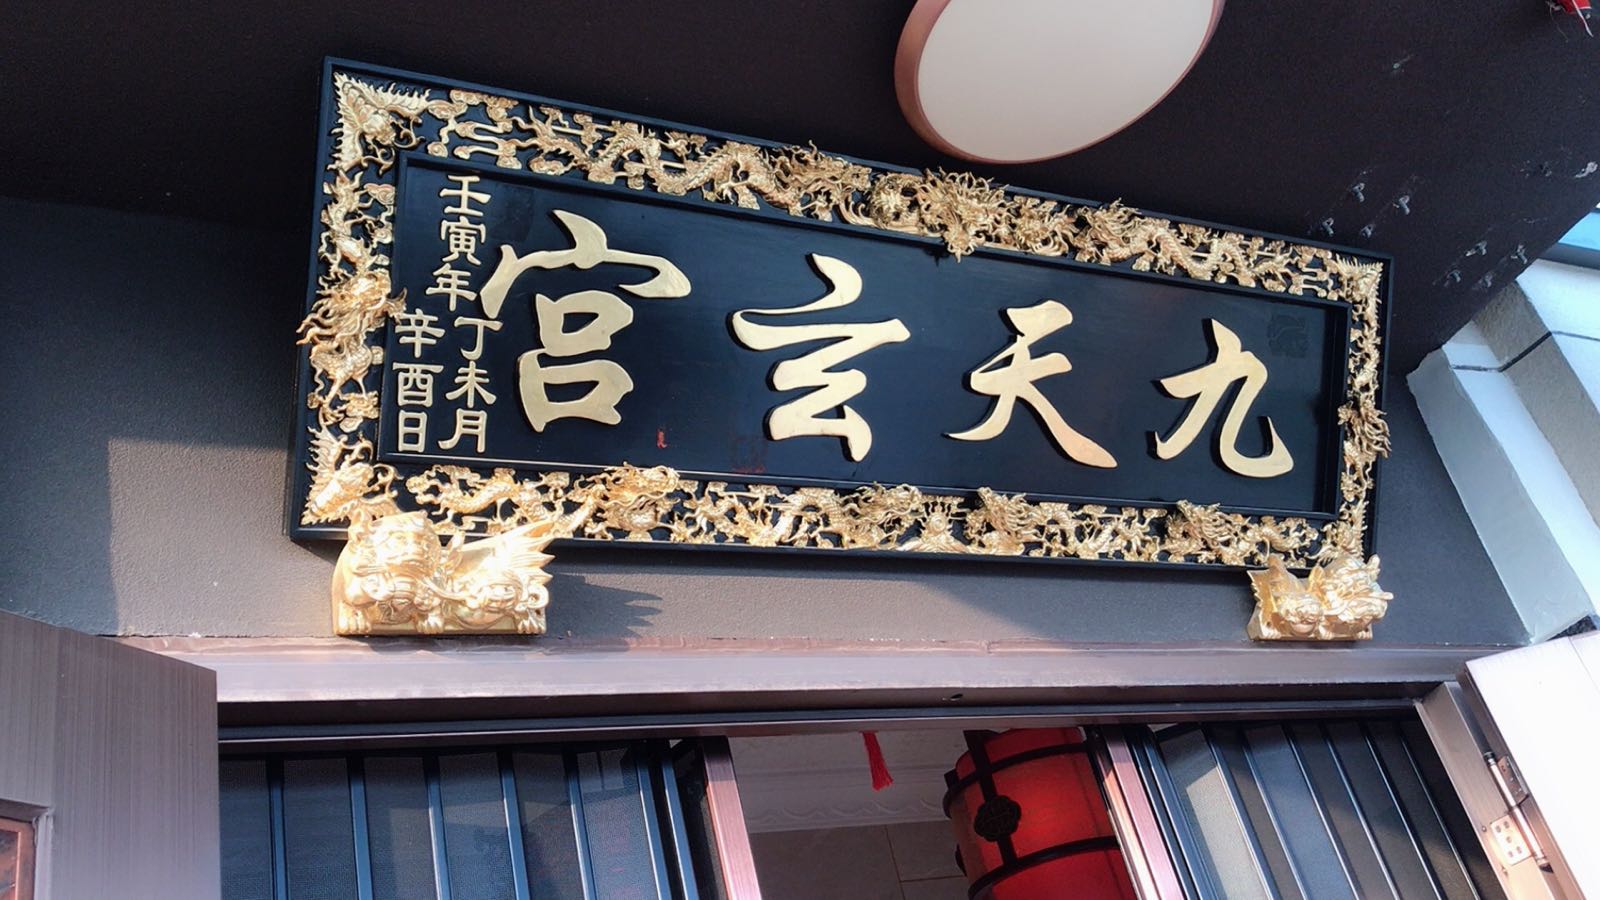 九天玄宮
壬寅年
丁未月
辛酉日